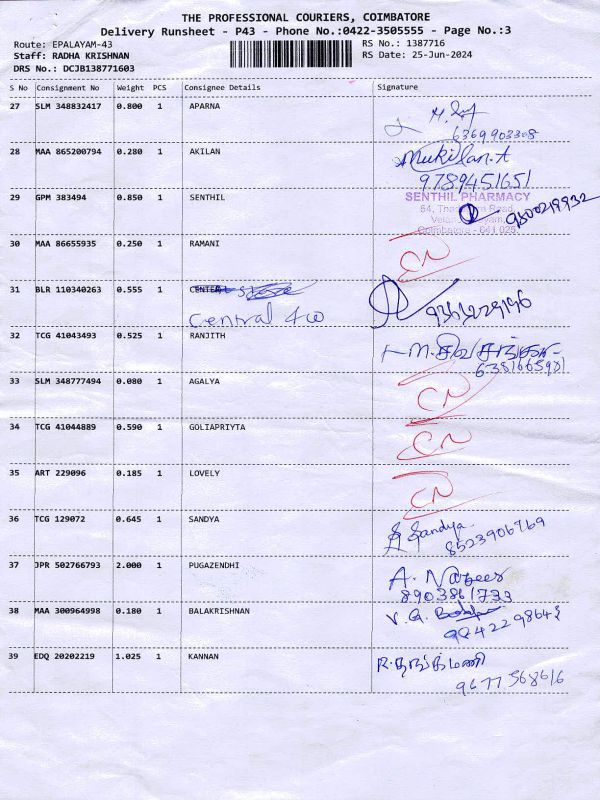 THE PROFESSIONAL COURIERS, COIMBATORE
Delivery Runsheet - P43 - Phone No.:0422-3505555 - Page No.:3
Route: EPALAYAM-43 RS No.: 1387716
Staff: RADHA KRISHNAN RS Date: 25-Jun-2024
DRS No.: DCJB138771603
S No Consignment No Weight PCS Consignee Details Signature
27 SLM 348832417 0.800 1 APARNA
6369903308
28 MAA 865200794 0.280 1 AKILAN Mukilan.A
9789451651
29 GPM 383494 0.850 1 SENTHIL SENTHIL PHARMACY
Coimbatore - 641 025
9800219932
30 MAA 86655935 0.250 1 RAMANI CN
31 BLR 110340263 0.555 1 9361229196
Central 4w
32 TCG 41043493 0.525 1 RANJITH
6381665901
33 SLM 348777494 0.080 1 AGALYA CN
34 TCG 41044889 0.590 1 GOLIAPRIYTA CN
35 ART 229096 0.185 1 LOVELY CN
36 TCG 129072 0.645 1 SANDYA Sandya
8523906769
37 JPR 502766793 2.000 1 PUGAZENDHI A. Nazeer
8903861733
38 MAA 300964998 0.180 1 BALAKRISHNAN V.G.
39 EDQ 20202219 1.025 1 KANNAN R.தங்கமணி
9677568616